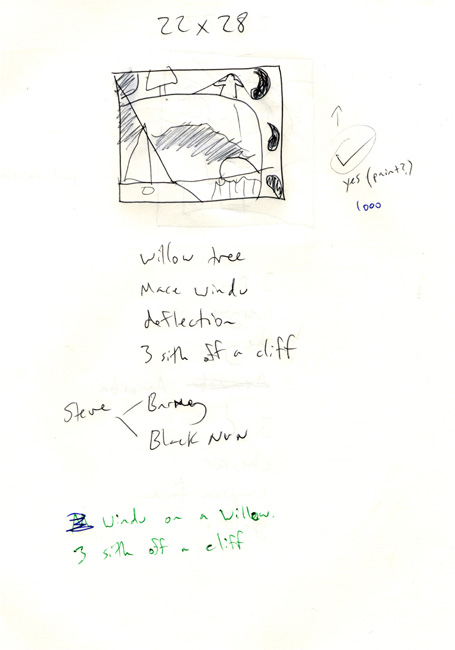 22 x 28
yes (paint?)
1000
willow tree
Mace windu
deflection
3 sith off a cliff
Steve
Barney
Black NVN
windu on a willow.
3 sith off a cliff